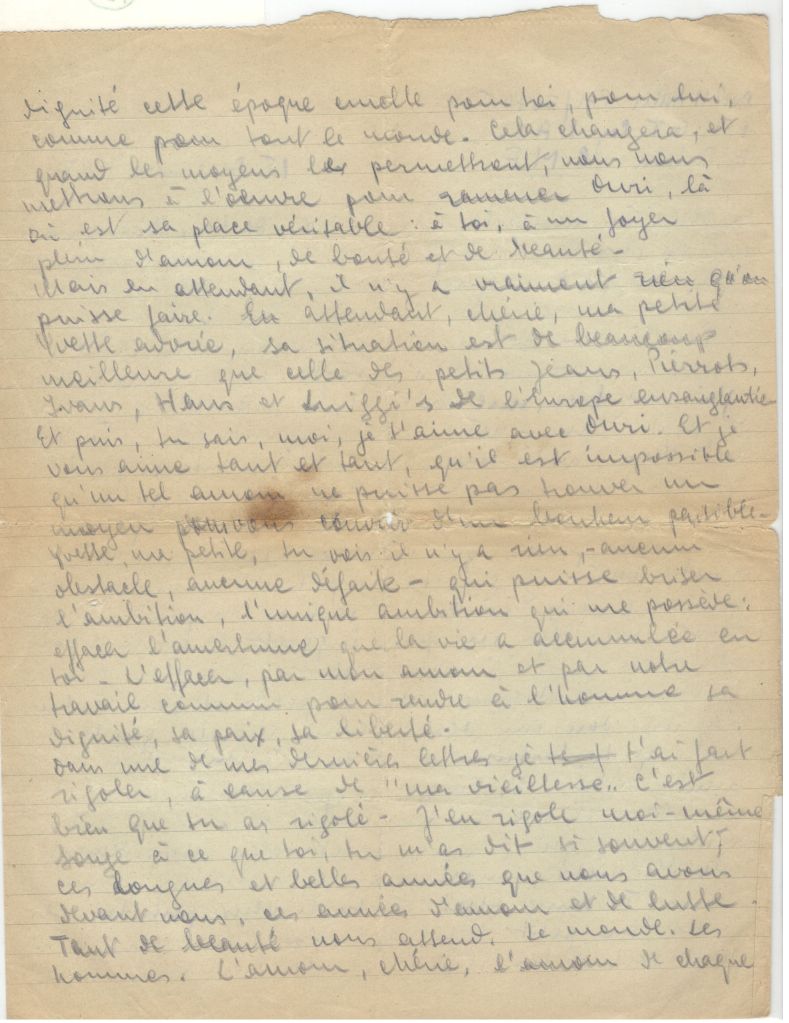 dignité cette époque cruelle pour toi, pour lui,
comme pour tout le monde. Cela changera, et
quand les moyens les permettront, nous nous
mettrons à l'oeuvre pour ramener Ouri, là
où est sa place véritable : à toi, à un foyer
plein d'amour, de bonté et de beauté -
Mais en attendant, il n'y a vraiment rien qu'on
puisse faire. En attendant, chérie, ma petite
Yvette adorée, sa situation est de beaucoup
meilleure que celle des petits Jeans, Pierrots,
Ivans, Hans et Luiggi's de l'Europe ensanglantée
Et puis, tu sais, moi, je t'aime avec Ouri. Et je
vous aime tant et tant, qu'il est impossible
qu'un tel amour ne puisse pas trouver un
moyen pour vous couvrir d'un bonheur paisible -
Yvette, ma petite, tu vois il n'y a rien, - aucun
obstacle, aucune défaite - qui puisse briser
l'ambition, l'unique ambition qui me possède :
effacer l'amertume que la vie a accumulée en
toi - L'effacer, par mon amour et par notre
travail commun pour rendre à l'homme sa
dignité, sa paix, sa liberté.
Dans une de mes dernières lettres je t'ai fait
rigoler, à cause de "ma vieillesse". C'est
bien que tu as rigolé - J'en rigole moi-même
Songe à ce que toi, tu m'as dit si souvent,
ces longues et belles années que nous avons
devant nous, ces années d'amour et de lutte.
Tant de beauté nous attend. Le monde. Les
hommes. L'amour, chérie, l'amour de chaque